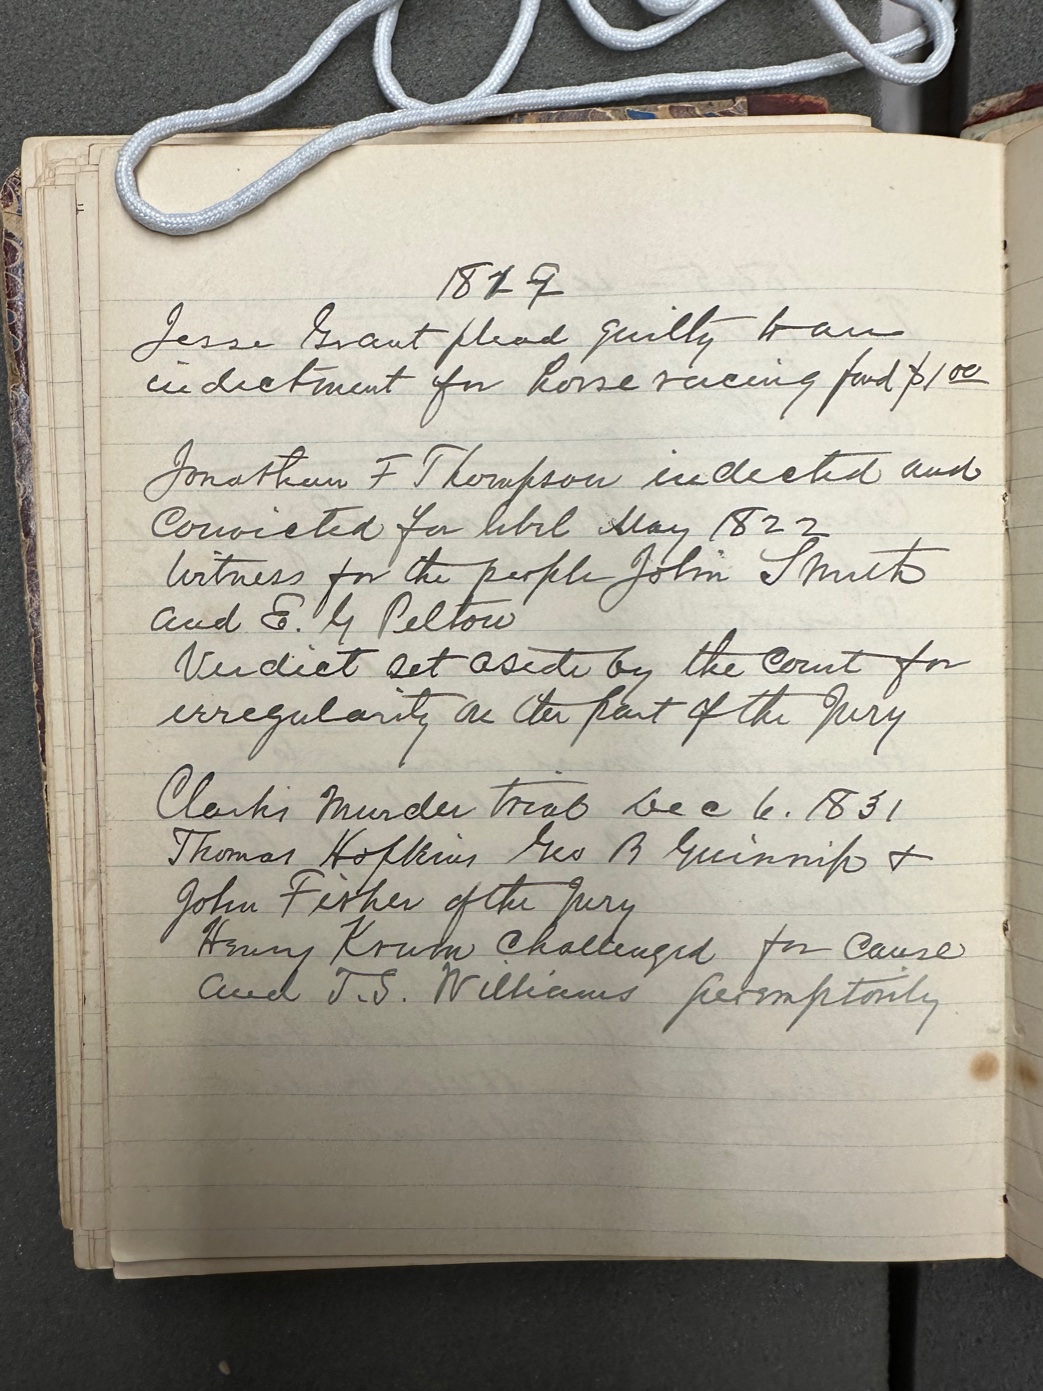 1829
Jesse Grant plead guilty to an
indictment for horse racing find $1 00
Jonathan F Thompson indected and
Convicted for libel May 1822
Witness for the people John Smith
and E. G Pelton
Verdict set aside by the Court for
irregularity on the part of the Jury
Clarks Murder trial Dec 6. 1831
Thomas Hopkins Geo B Guinnip &
John Fisher of the Jury
Henry Krum Challenged for Cause
and T.S. Williams peremptorily